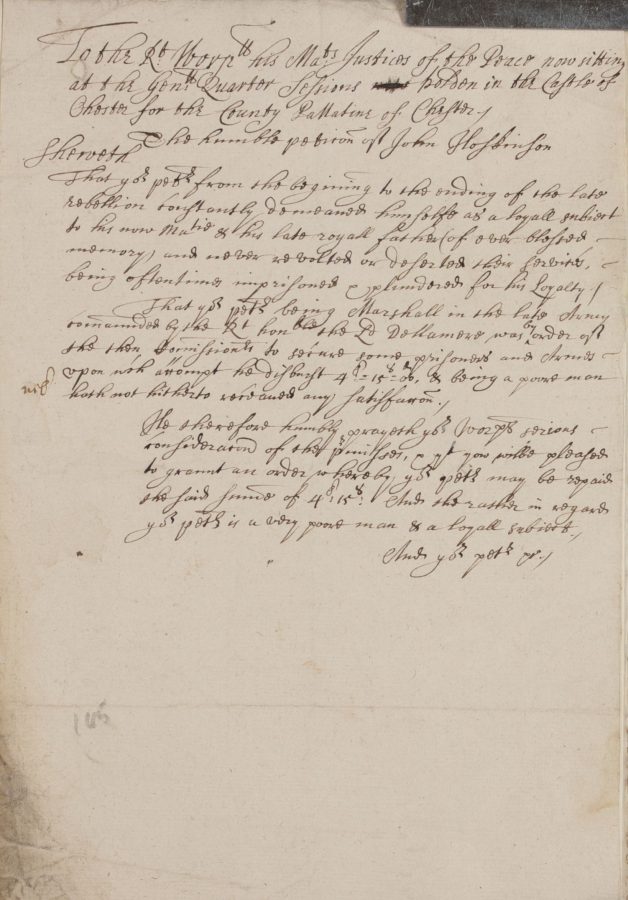 To the Rt Worpll his Mats Justices of the Peace now sitting
at the Genll Quarter Sessions holden in the Castle of
Chester for the County Pallatine of Chester /
The humble peticon of John Hoskinson
Sheweth
That yor petr from the begining to the ending of the late
rebellion constantly demeaned himselfe as a loyall subiect
to his now Matie & his late royall father (of ever blessed
memory) and never revolted or deserted their service,
being oftentimes imprisoned & plundered for his Loyalty /
That yor petr being Marshall in the late Army
comanded by the Rt honble the Ld Dellamere, was by order of
the then Comissionrs to secure some prisoners and Armes
upon wch attempt he disburst 4li-15s-00, & being a poore man
hath not hitherto receaved any satisfaccon /
He therefore humbly prayeth yor Worpps serious
consideracon of the pmisses, & yt you wilbe pleased
to grannt an order whereby yor petr may be repaid
the said summe of 4li 15s. And the rather in regard
yor petr is a very poore man & a loyall subiect /
And yor petr &c /
145